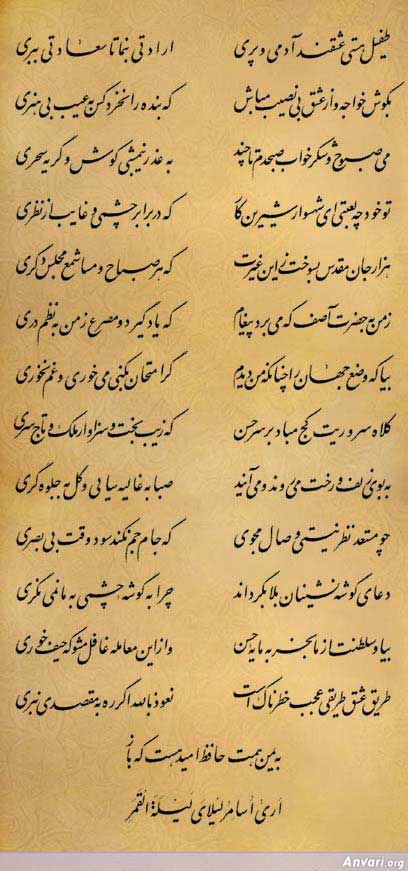 طفیل هستی عشقند آدمی و پری ارادتی بنما تا سعادتی ببری
بکوش خواجه و از عشق بی نصیب مباش که بنده را نخرد کس به عیب بی هنری
می صبوح و شکر خواب صبحدم تا چند به عذر نیمشبی کوش و گریه سحری
تو خود چه لعبتی ای شهسوار شیرین کار که در برابر چشمی و غایب از نظری
هزار جان مقدس بسوخت زین غیرت که هر صباح و مسا شمع مجلس دگری
ز من به حضرت آصف که می برد پیغام که یاد گیرد دو مصرع ز من به نظم دری
بیا که وضع جهان را چنانکه من دیدم گر امتحان بکنی می خوری و غم نخوری
کلاه سروریت کج مباد بر سر حسن که زیب بخت و سزاوار ملک و تاج سری
به بوی زلف و رخت می روند و می آیند صبا به غالیه سایی و گل به جلوه گری
چو مستعد نظر نیستی وصال مجوی که جام جم نکند سود وقت بی بصری
دعای گوشه نشینان بلا بگرداند چرا به گوشه چشمی به ما نمی نگری
بیا و سلطنت از ما بخر به مایه حسن و از این معامله غافل مشو که حیف خوری
طریق عشق طریقی عجب خطرناک است نعوذ بالله اگر ره به مقصدی نبری
به یمن همت حافظ امید هست که باز
اری اسامر لیلای لیلة القمر
Anvari.org